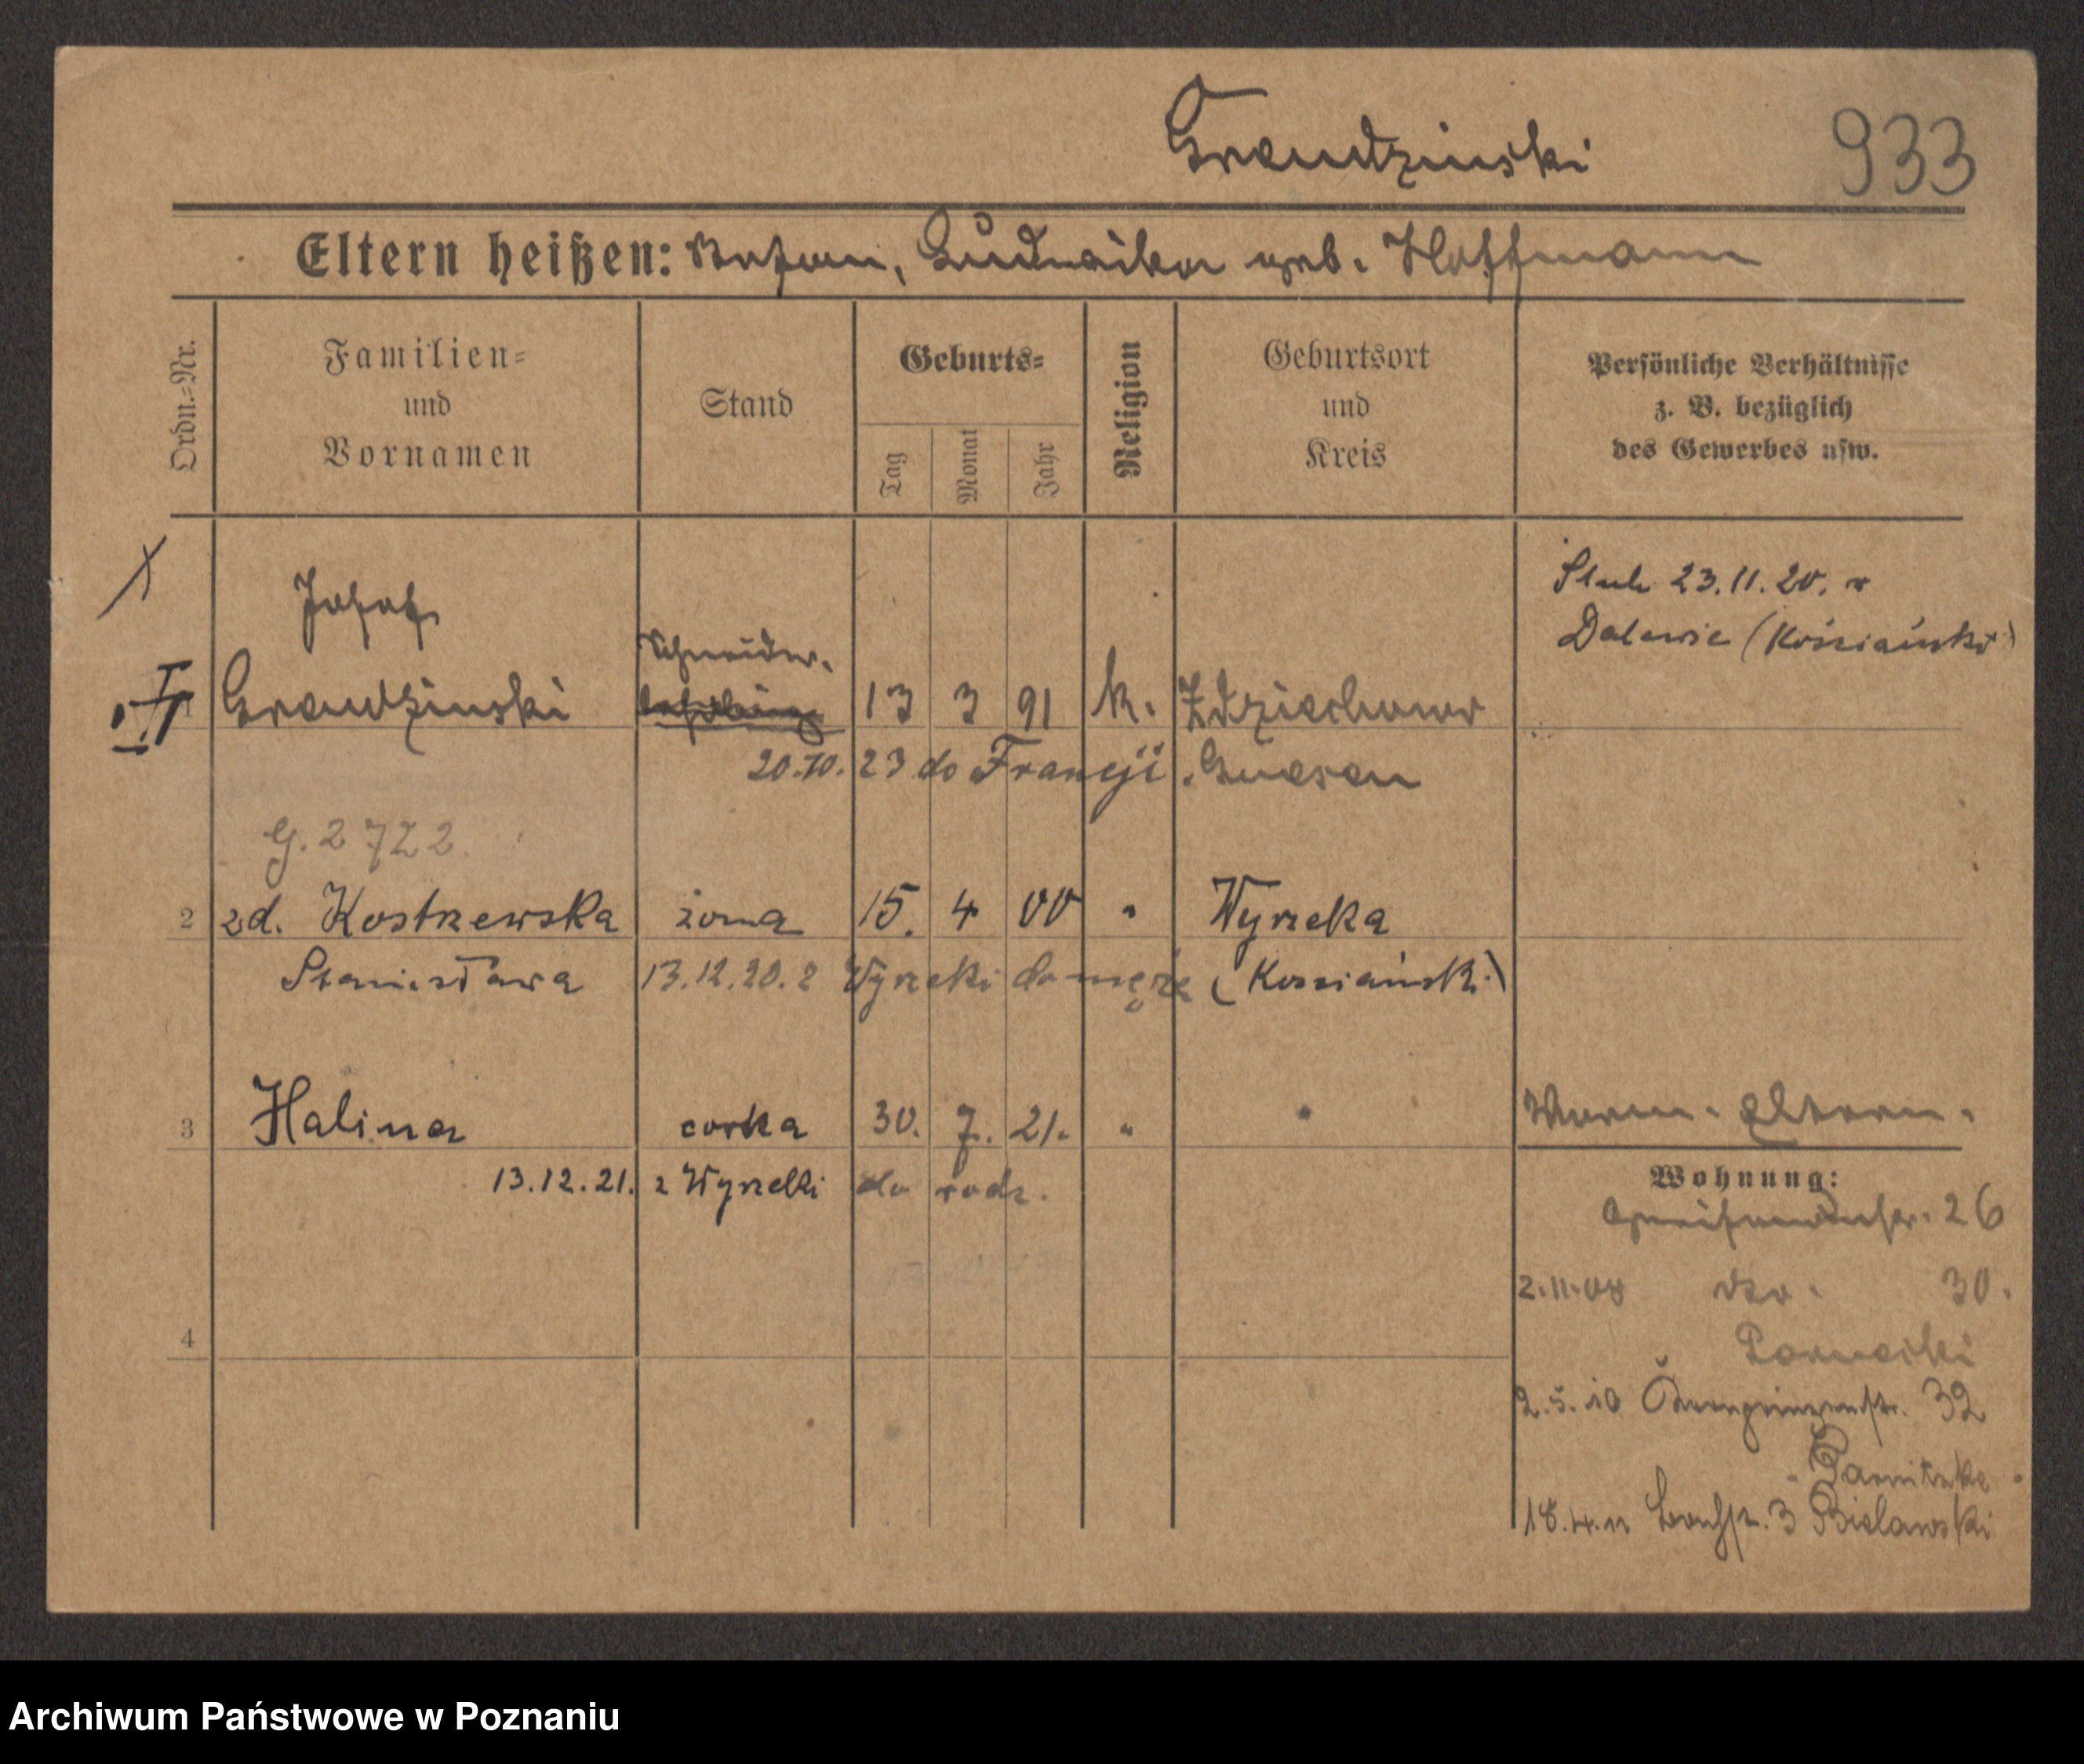 Grandzinski 933
Eltern heißen: Stefan, Ludwika geb. Hoffmann
Ordn.-Nr.
Familien-
und
Vornamen
Stand
Geburts-
Tag
Monat
Jahr
Religion
Geburtsort
und
Kreis
Persönliche Verhältnisse
z. B. bezüglich
des Gewerbes usw.
Ślub 23.11.20. w
Dalewie (Kościański)
Josef
Schneider.
1 Grandzinski 13 3 91 k. Zdziechowo
20.10.23 do Francji Gnesen
G. 2722
2 zd. Kostrzewska żona 15. 4 00 " Wyrzeka
Stanisława 13.12.20. z Wyrzeki do męża (Kościański)
3 Halina corka 30. 7. 21. " "
13.12.21. z Wyrzeki do rodz.
Wohnung:
26
2.11.08 dto. 30.
2.5.10 Kronprinzenstr. 32
18.4.11 3 Bielawski
4
Archiwum Państwowe w Poznaniu